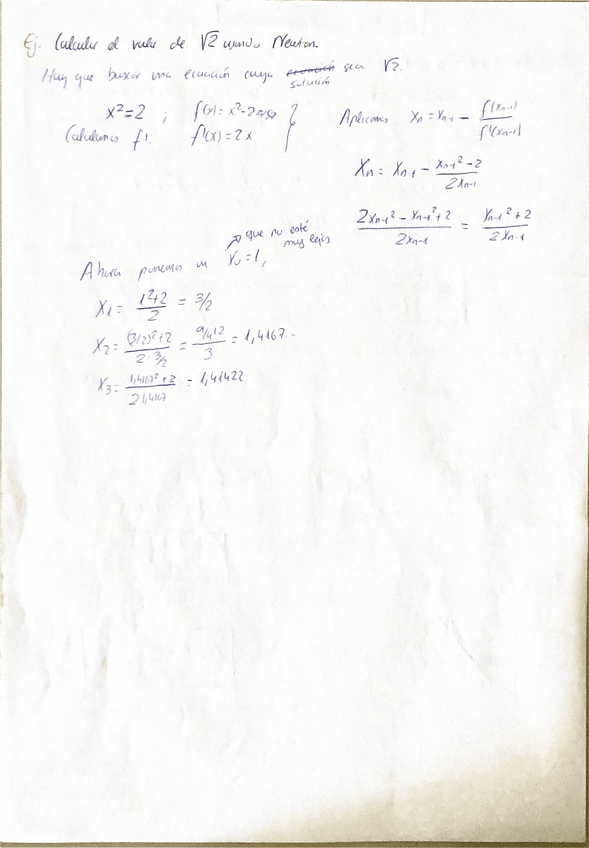 Ej. Calcular el valor de √2 usando Newton.
Hay que buscar una ecuación cuya ecuación sea √2.
solución
x²=2 ; f(x)=x²-2
Calculamos f'. f'(x)=2x
Aplicamos xₙ = xₙ₋₁ - f(xₙ₋₁)/f'(xₙ₋₁)
xₙ = xₙ₋₁ - (xₙ₋₁²-2)/(2xₙ₋₁)
(2xₙ₋₁² - xₙ₋₁²+2)/(2xₙ₋₁) = (xₙ₋₁²+2)/(2xₙ₋₁)
que no esté
muy lejos
Ahora ponemos un x₀=1,
x₁= (1²+2)/2 = 3/2
x₂= ((3/2)²+2)/(2·3/2) = (9/4+2)/3 = 1,4167..
x₃= (1,4167²+2)/(2 1,4167) = 1,41422